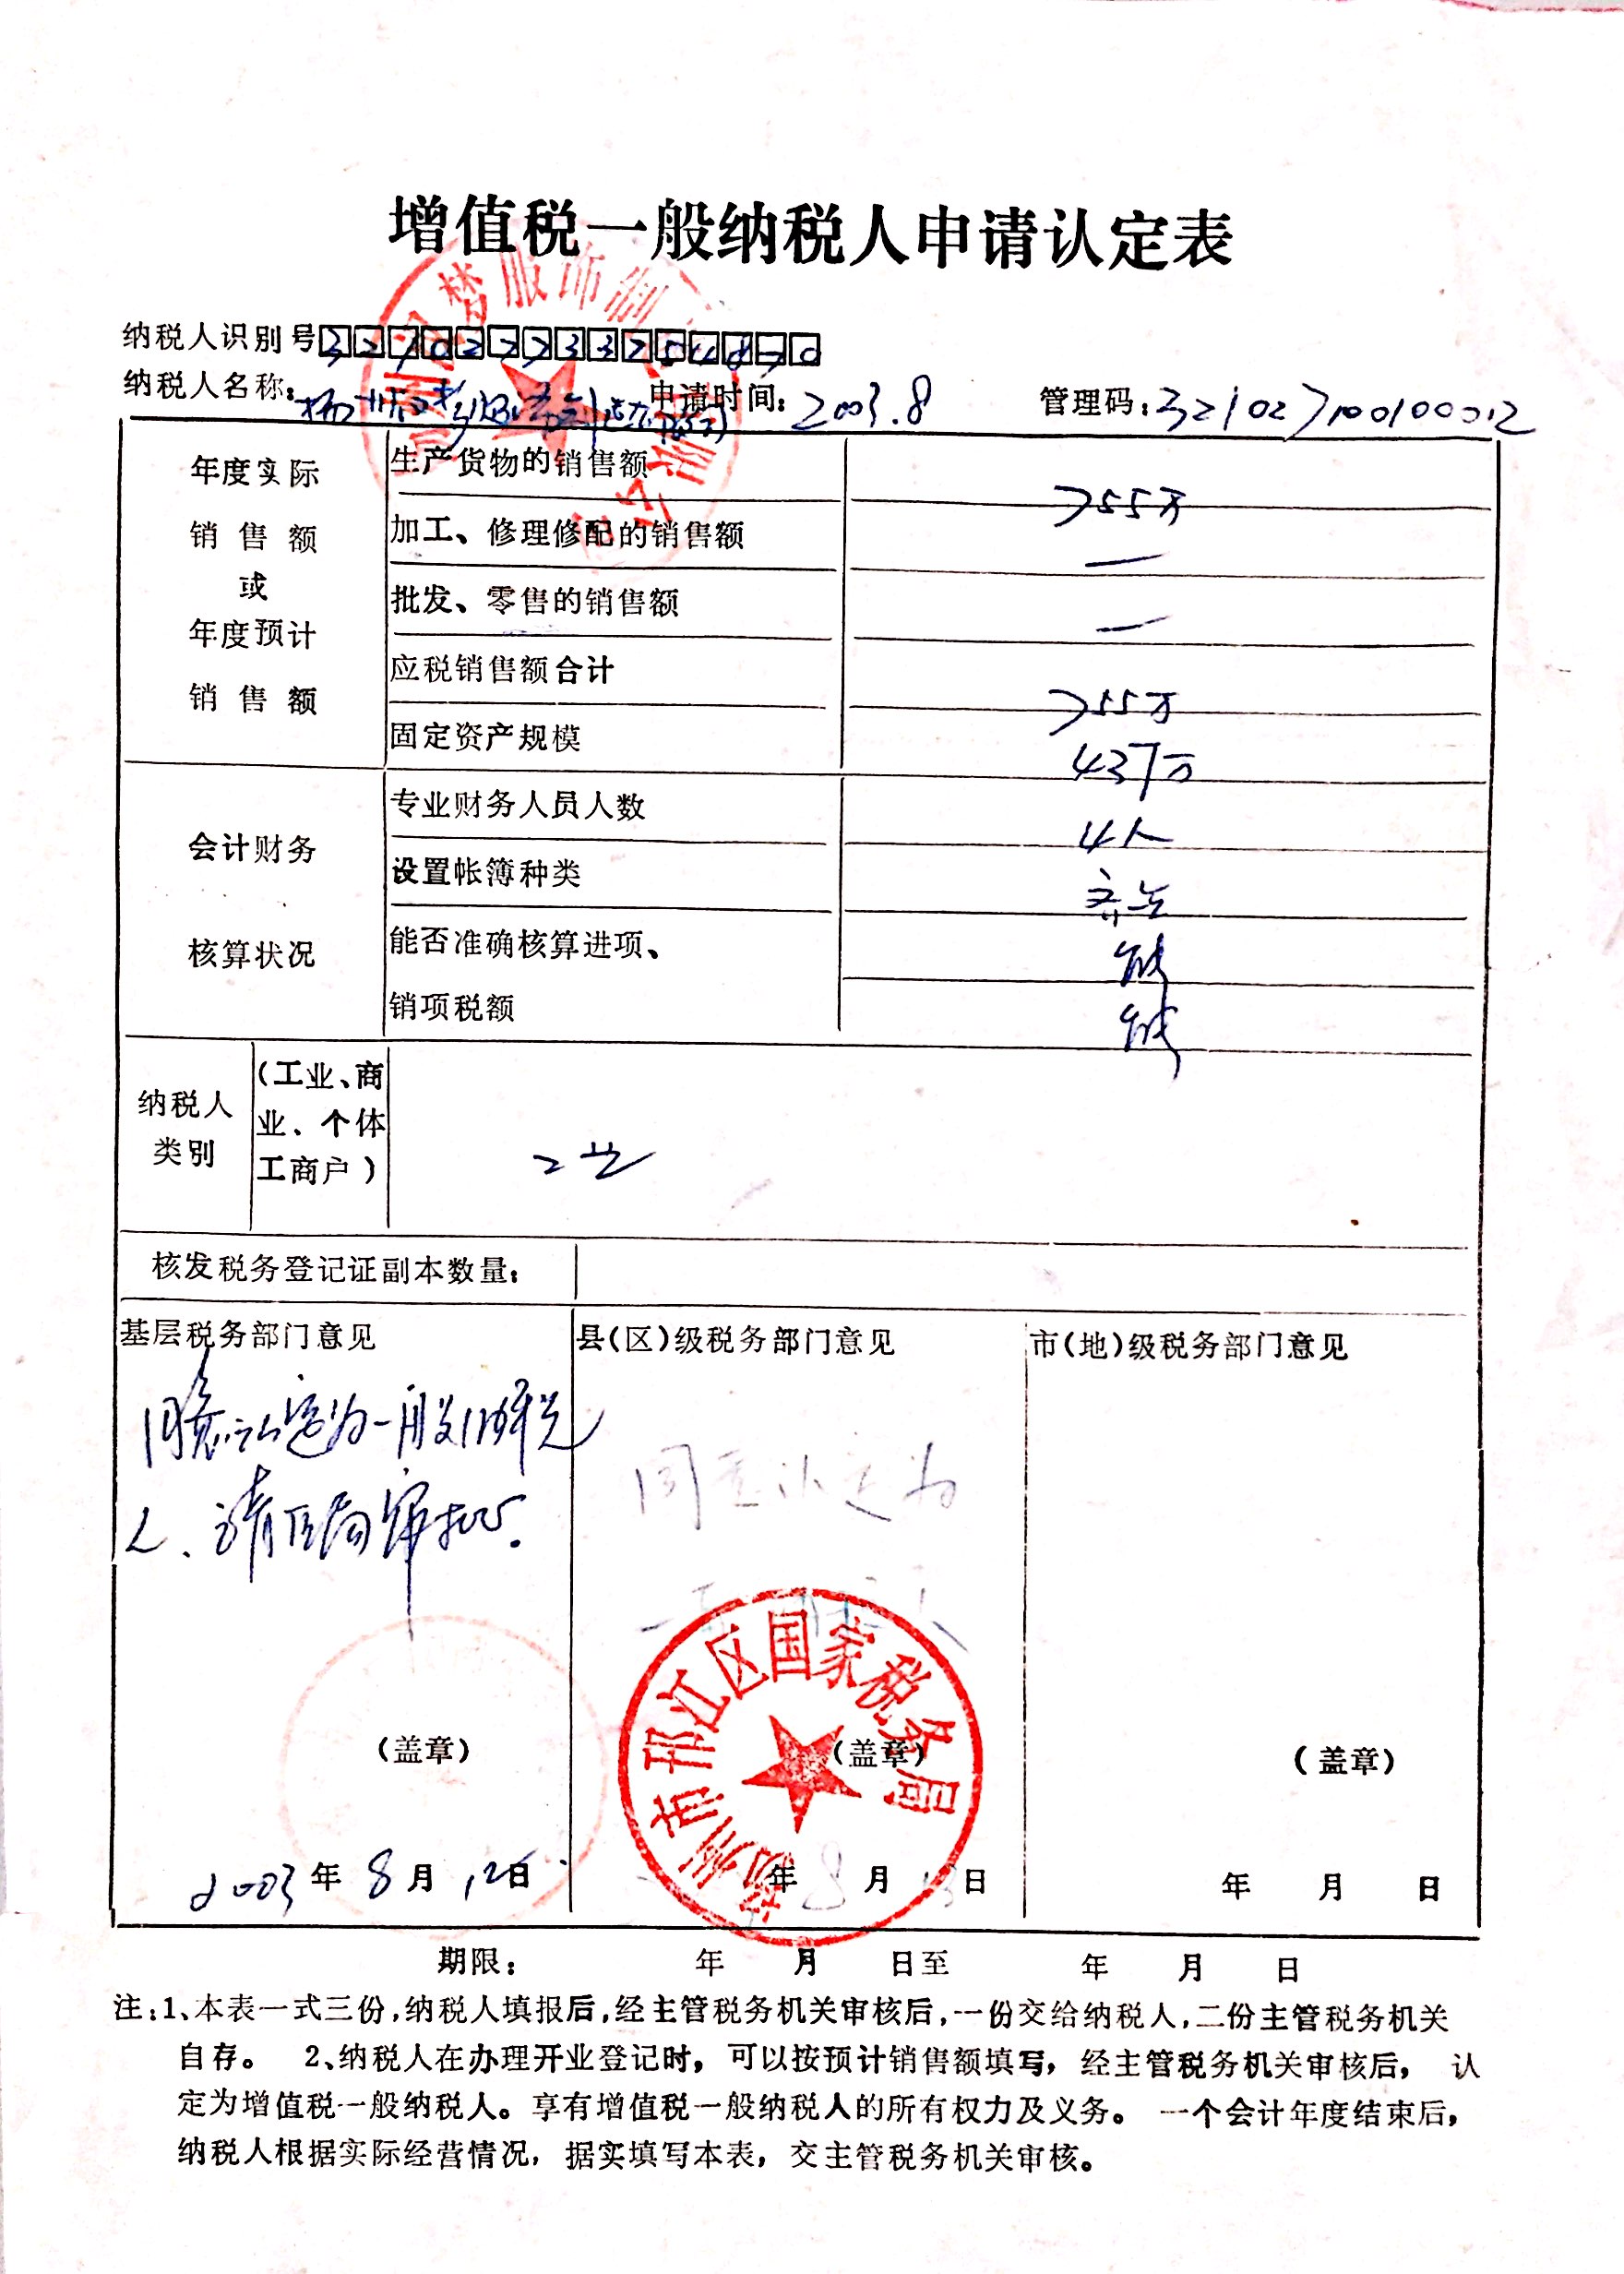 增值税一般纳税人申请认定表
纳税人识别号
纳税人名称: 申请时间: 2003.8 管理码: 321027100100012
年度实际销售额或年度预计销售额
生产货物的销售额 755万
加工、修理修配的销售额 —
批发、零售的销售额 —
应税销售额合计 755万
固定资产规模 437万
会计财务核算状况
专业财务人员人数 4人
设置帐簿种类 齐全
能否准确核算进项、 能
销项税额 能
纳税人类别 (工业、商业、个体工商户) 工业
核发税务登记证副本数量:
基层税务部门意见 县(区)级税务部门意见 市(地)级税务部门意见
同意认定为一般纳税
人、请区局审批.
同意认定为
扬州市邗江区国家税务局
(盖章) (盖章) (盖章)
2003年8月12日 年8月13日 年 月 日
期限: 年 月 日至 年 月 日
注:1、本表一式三份,纳税人填报后,经主管税务机关审核后,一份交给纳税人,二份主管税务机关
自存。 2、纳税人在办理开业登记时,可以按预计销售额填写,经主管税务机关审核后, 认
定为增值税一般纳税人。享有增值税一般纳税人的所有权力及义务。 一个会计年度结束后,
纳税人根据实际经营情况,据实填写本表,交主管税务机关审核。